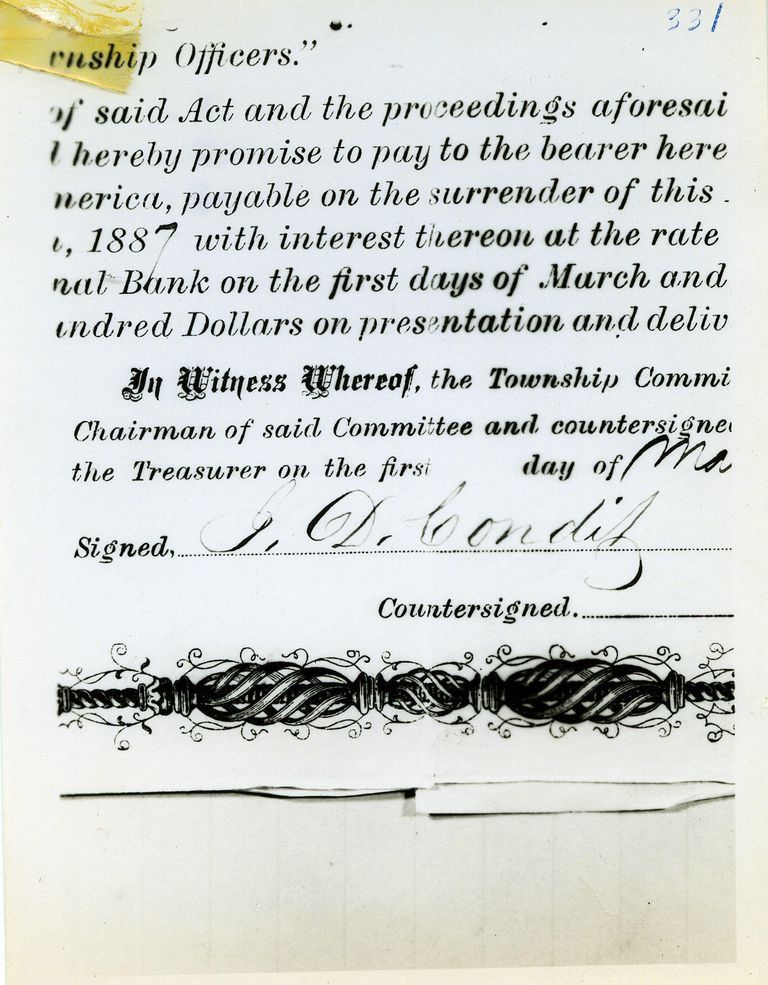 331
wnship Officers."
of said Act and the proceedings aforesai
l hereby promise to pay to the bearer here
nerica, payable on the surrender of this
, 1887 with interest thereon at the rate
nal Bank on the first days of March and
undred Dollars on presentation and deliv
In Witness Whereof, the Township Commi
Chairman of said Committee and countersigne
the Treasurer on the first day of Ma
Signed, J. D. Condit
Countersigned.